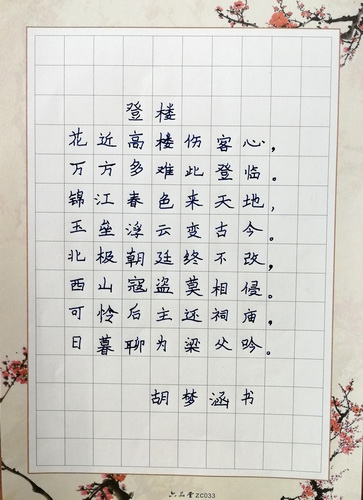 登楼
花近高楼伤客心，
万方多难此登临。
锦江春色来天地，
玉垒浮云变古今。
北极朝廷终不改，
西山寇盗莫相侵。
可怜后主还祠庙，
日暮聊为梁父吟。
胡梦涵书
六品堂 ZC033